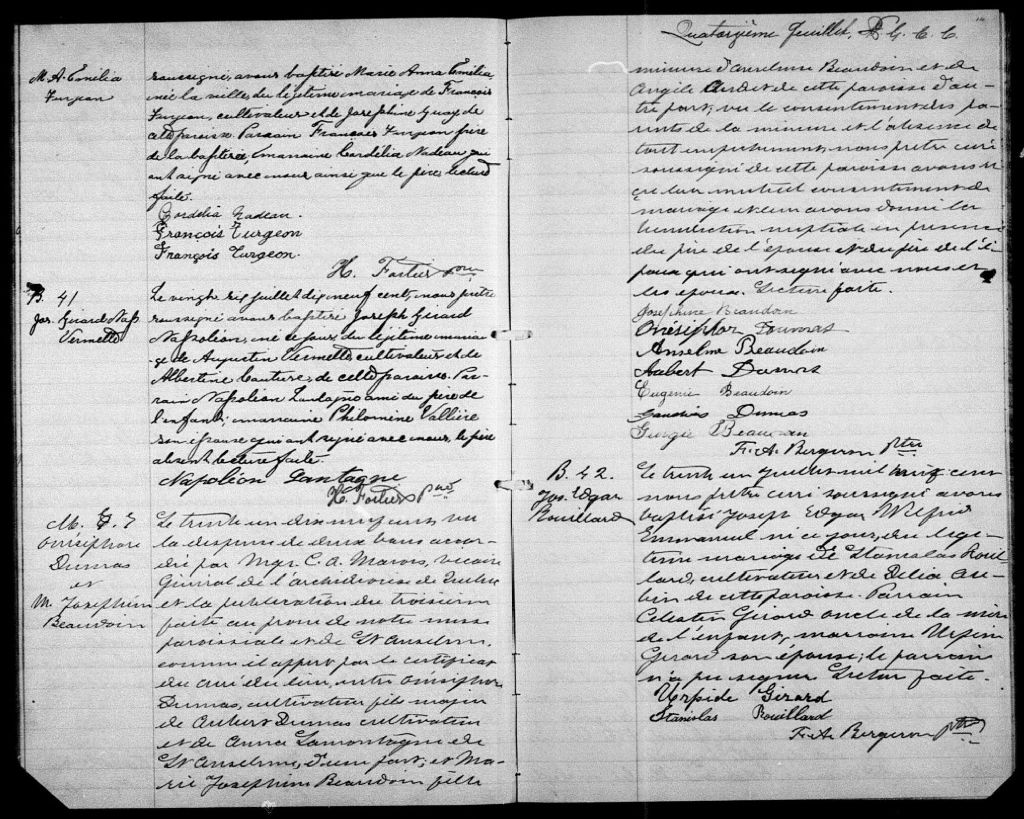 M. A. Emélia
Turgeon
soussigné, avons baptisé Marie Anna Emélia,
née la veille, du légitime mariage de François
Turgeon, cultivateur et de Joséphine Guay de
cette paroisse. Parrain François Turgeon frère
de la baptisée, marraine Cordélia Nadeau qui
ont signé avec nous ainsi que le père, lecture
faite.
Cordélia Nadeau.
François Turgeon
François Turgeon.
H. Fortier ptre
B. 41
Jos. Girard Nap.
Vermette
Le vingt six juillet dix neuf cent, nous prêtre
soussigné avons baptisé Joseph Girard
Napoléon, né ce jour, du légitime maria-
ge de Augustin Vermette, cultivateur et de
Albertine Couture, de cette paroisse. Par-
rain Napoléon Lantagne ami du père de
l'enfant; marraine Philomine Vallière
son épouse qui ont signé avec nous, le père
absent lecture faite.
Napoléon Lantagne
H. Fortier ptre
M. 7
Onésiphore
Dumas
et
M. Joséphine
Beaudoin
Le trente un dix neuf cent, vu
la dispense de deux bans accor-
dée par Mgr. C. A. Marois, vicaire
Général de l'archidiocèse de Québec
et la publication du troisième
faite au prone de notre messe
paroissiale et de St Anselme,
comme il appert par le certificat
du curé du lieu, entre Onésiphore
Dumas, cultivateur fils majeur
de Dumas cultivateur
et de Anna Lamontagne de
St Anselme, d'une part; et Ma-
rie Joséphine Beaudoin fille
Quatorzième feuillet,
mineure d'Anselme Beaudoin et de
Angèle Audet de cette paroisse d'au-
tre part; vu le consentement des pa-
rents de la mineure et l'absence de
tout empêchement, nous prêtre curé
soussigné de cette paroisse avons re-
çu leur mutuel consentement de
mariage et leur avons donné la
bénédiction nuptiale en présence
du père de l'épouse et du père de l'é-
poux qui ont signé avec nous et
les époux. Lecture faite.
Josephine Beaudoin
Onésiphor Dumas
Anselme Beaudoin
Aubert Dumas
Eugénie Beaudoin
Gaudias Dumas
Beaudoin
F. A. Bergeron Ptre
B. 42.
Jos. Edgar
Rouillard
Le trente un Juillet mil neuf cent
nous prêtre curé soussigné avons
baptisé Joseph Edgar Wilfrid
Emmanuel né ce jour, du légi-
time mariage de Stanislas Rouil-
lard, cultivateur et de Délia Au-
bin de cette paroisse. Parrain
Célestin Girard oncle de la mère
de l'enfant, marraine
Girard son épouse; le parrain
n'a pu signer Lecture faite.
Girard
Stanislas Rouillard
F. A. Bergeron Ptre